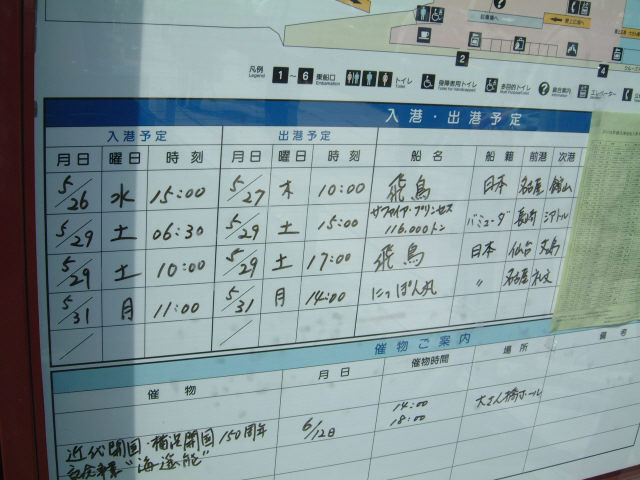 凡例 1～6 乗船口 トイレ 障害者用トイレ 多目的トイレ エレベーター
Legend Embarkation Toilet
2
4
入港・出港予定
入港予定 出港予定
月日 曜日 時刻 月日 曜日 時刻 船名 船籍 前港 次港
5/26 水 15:00 5/27 木 10:00 飛鳥 日本 名古屋 館山
5/29 土 06:30 5/29 土 15:00 サファイア・プリンセス 116,000トン バミューダ 長崎 シアトル
5/29 土 10:00 5/29 土 17:00 飛鳥 日本 仙台
5/31 月 11:00 5/31 月 14:00 にっぽん丸 〃 名古屋
催物ご案内
催物 月日 催物時間 場所 備考
近代開国・横浜開国150周年 6/12日 14:00 大さん橋ホール
18:00